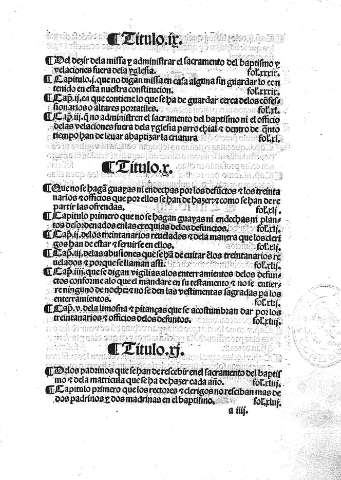 ¶ Titulo.ix.
¶ Del dezir dela missa y administrar el sacramento del baptismo y
velaciones fuera dela yglesia. fol.xxxix.
¶ Capitulo.j. que no digan missa en casa alguna sin guardar lo con
tenido en esta nuestra constitucion. fol.xxxix.
¶ Cap.ij. en que contiene lo que se ha de guardar cerca delos cōfes-
sionarios o altares portatiles. fol.xl.
¶ Cap.iij. q̄ no administren el sacramento del baptismo ni el officio
delas velaciones fuera dela yglesia parrochial y dentro de q̄nto
tiempo han de leuar abaptizar la criatura fol.xl.
¶ Titulo.x.
¶ Que no se hagā guayas ni endechas por los defūctos y los treinta
narios y officios que por ellos se han de hazer y como se han de re
partir las ofrendas. fol.xlj.
¶ Capitulo primero que no se hagan guayas ni endechas ni plan-
tos desordenados en las exequias delos defunctos. fol.xlj.
¶ Cap.ij. delos treintanarios reuelados y dela manera que los cleri
gos han de estar y seruirse en ellos. fol.xlj.
¶ Cap.iij. delas abusiones que se hā de euitar en los treintanarios re
uelados y porque se llaman assi. fol.xlij.
¶ Cap.iiij. que se digan vigilias alos enterramientos delos defun-
ctos conforme alo que el mandare en su testamento y no se entier-
re ninguno de noche y no se den las vestimentas sagradas pa los
enterramientos. fol.xlij.
¶ Cap.v. dela limosna y pitanças que se acostumbran dar por los
treintanarios y officios delos defuntos. fol.xlij.
¶ Titulo.xj.
¶ Delos padrinos que se han de rescebir en el sacramento del baptis
mo y dela matricula que se ha de hazer cada año. fol.xliij.
¶ Capitulo primero que los rectores y clerigos no resciban mas de
dos padrinos y dos madrinas en el baptismo. fol.xliij.
a iiij.